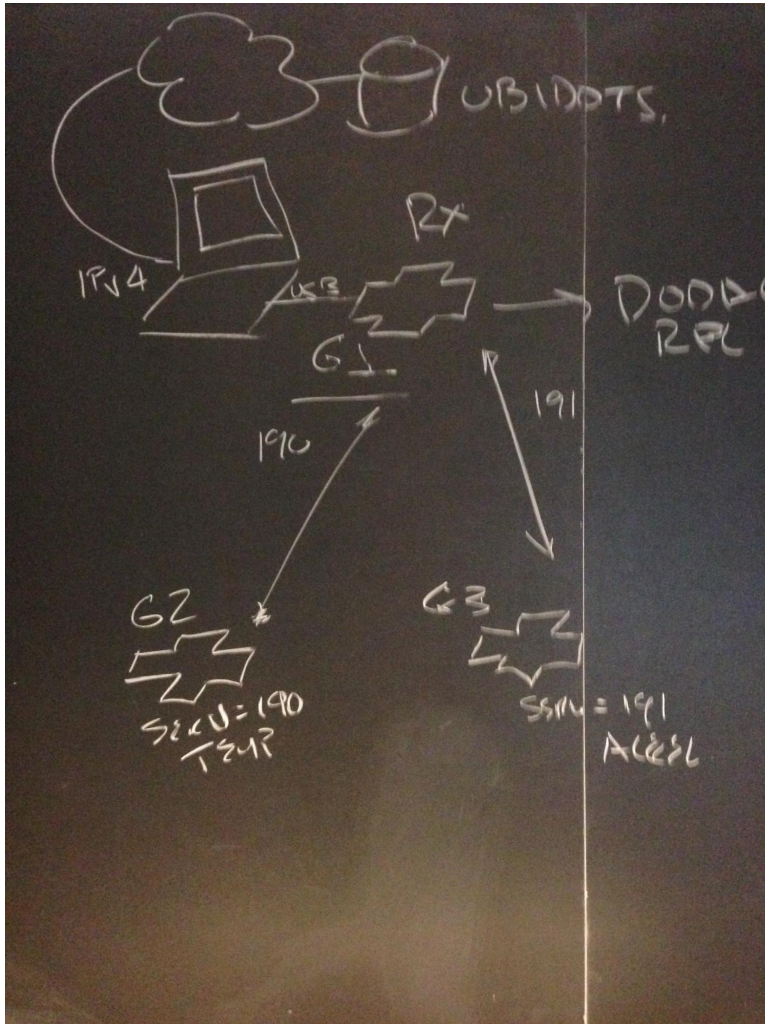 UBIDOTS.
RX
IPv4
USB
DODAG
RPL
G1
190
191
G2
G3
SERV=190
TEMP
SERV=191
ACCEL